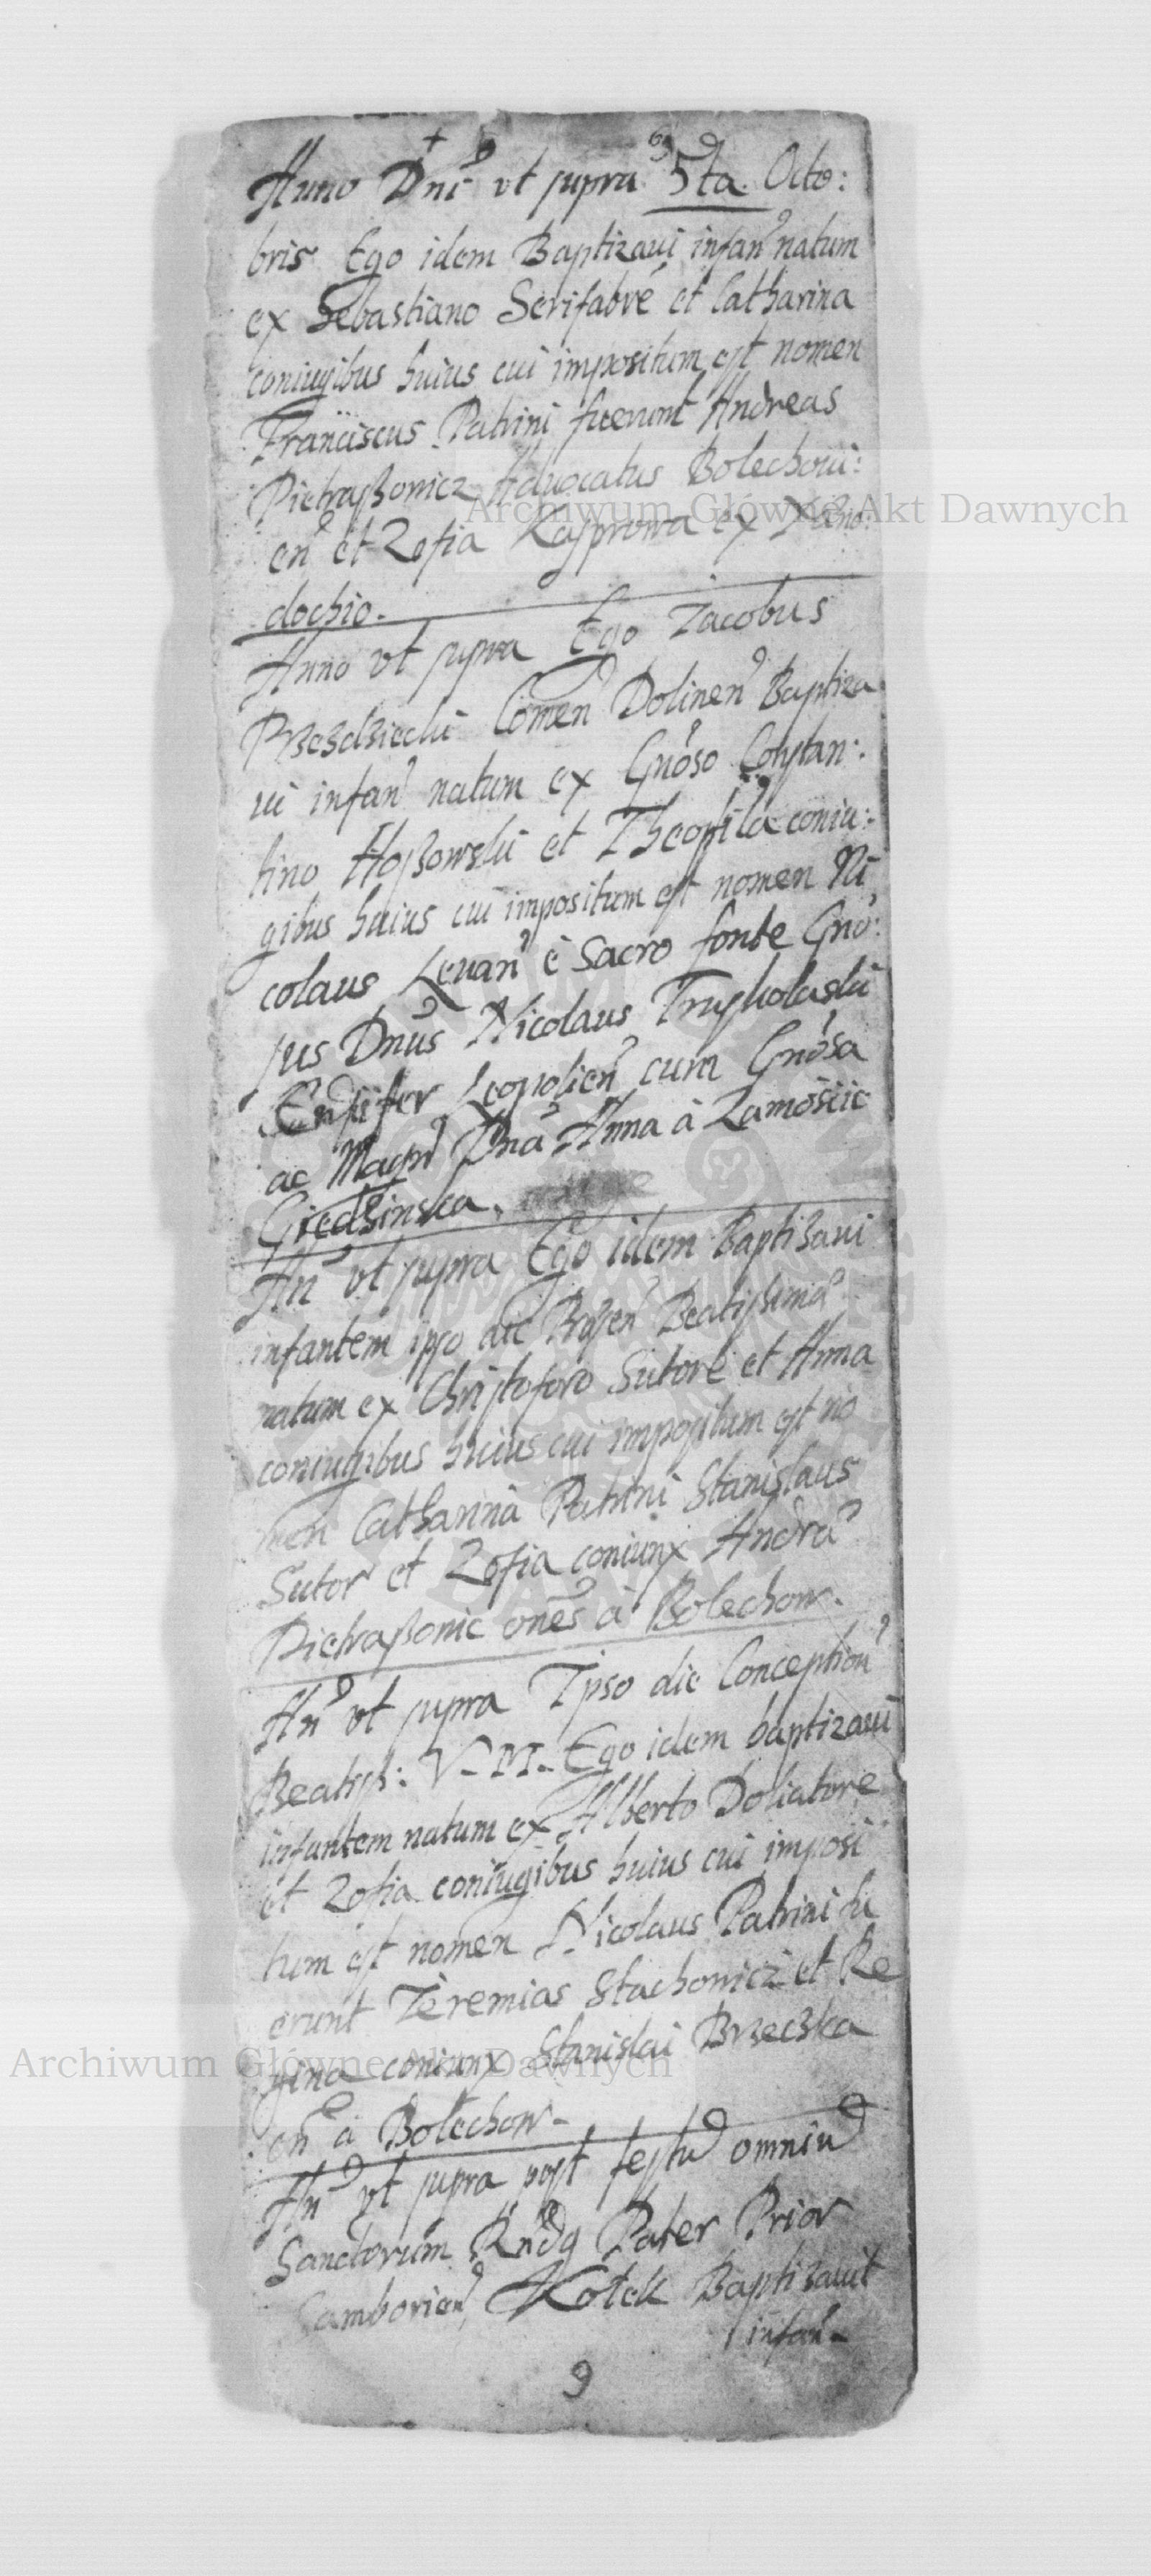 Anno Dni ut supra 5ta. Octo:
bris Ego idem Baptizaui infan natum
ex Sebastiano Serifabre et Catharina
coniugibus huius cui impositum est nomen
Franciscus Patrini fuerunt Andreas
Pietraszowicz Aduocatus Bolechoui:
en et Zofia Kasprowa ex Xeno:
dochio.
Anno ut supra Ego Jacobus
Przezdziecki Comen Dolinen Baptiza
ui infan natum ex Gnoso Constan:
tino Hoszowski et Theofila coniu:
gibus huius cui impositum est nomen Ni
colaus Leuan è Sacro fonte Gno:
sus Dnus Nicolaus Truskolaski
Ensifer Leopolien cum Gnosa
ac Magn Dna Anna à Zamoscic
Giedzinska.
An ut supra Ego idem Baptizaui
infantem ipso die Beatissima
natum ex Christoforo Sutore et Anna
coniugibus huius cui impositum est no
men Catharina Patrini Stanislaus
Sutor et Zofia coniunx Andra
Pietraszonic ones à Bolechow.
An ut supra Ipso die Conception
Beatiss: V. M. Ego idem baptizaui
infantem natum ex Alberto Doliatore
et Zofia coniugibus huius cui imposi
tum est nomen Nicolaus Patrini fu
erunt Jeremias Stachowicz et Re
gina coniunx Stanislai Brzeczka
en à Bolechow.
An ut supra post festu omniu
Sanctorum Rndq Pater Prior
Samborien Kotek Baptizauit
infan
9
Archiwum Główne Akt Dawnych
Archiwum Główne Akt Dawnych